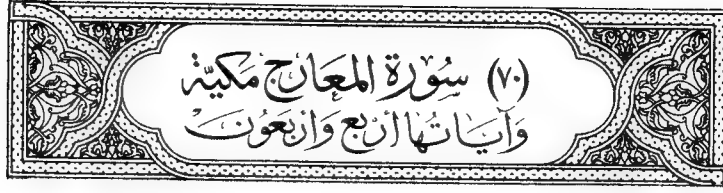 (٧٠) سُورَة المَعَارج مَكيّة
وَآيَاتُهَا أرْبَع وَأرْبَعُونَ